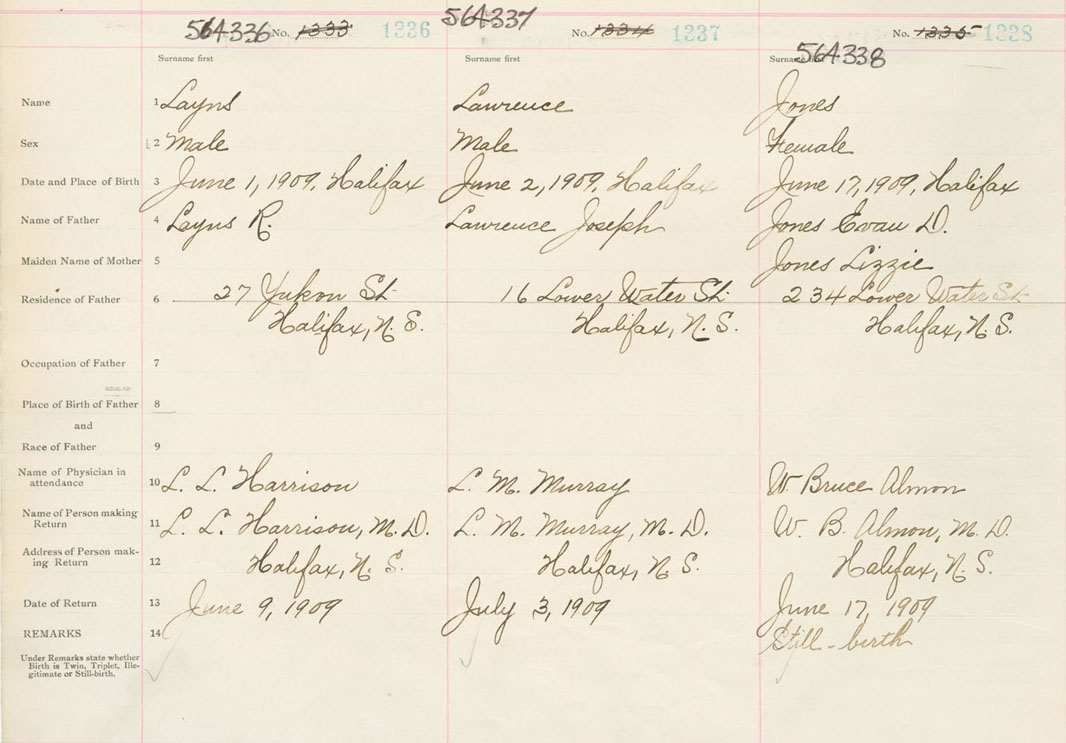 564336 No. 1333 1336 564337 No. 1334 1337 No. 1335 1328
564338
Surname first Surname first Surname first
Name 1 Layns Lawrence Jones
Sex 2 Male Male Female
Date and Place of Birth 3 June 1, 1909, Halifax June 2, 1909, Halifax June 17, 1909, Halifax
Name of Father 4 Layns R. Lawrence Joseph Jones Evan D.
Maiden Name of Mother 5 Jones Lizzie
Residence of Father 6 27 Yukon St. 16 Lower Water St. 234 Lower Water St.
Halifax, N. S. Halifax, N. S. Halifax, N. S.
Occupation of Father 7
Place of Birth of Father 8
and
Race of Father 9
Name of Physician in
attendance 10 L. L. Harrison L. M. Murray W. Bruce Almon
Name of Person making
Return 11 L. L. Harrison, M. D. L. M. Murray, M. D. W. B. Almon, M. D.
Address of Person mak-
ing Return 12 Halifax, N. S. Halifax, N. S. Halifax, N. S.
Date of Return 13 June 9, 1909 July 3, 1909 June 17, 1909
REMARKS 14 Still-birth
Under Remarks state whether
Birth is Twin, Triplet, Ille-
gitimate or Still-birth.